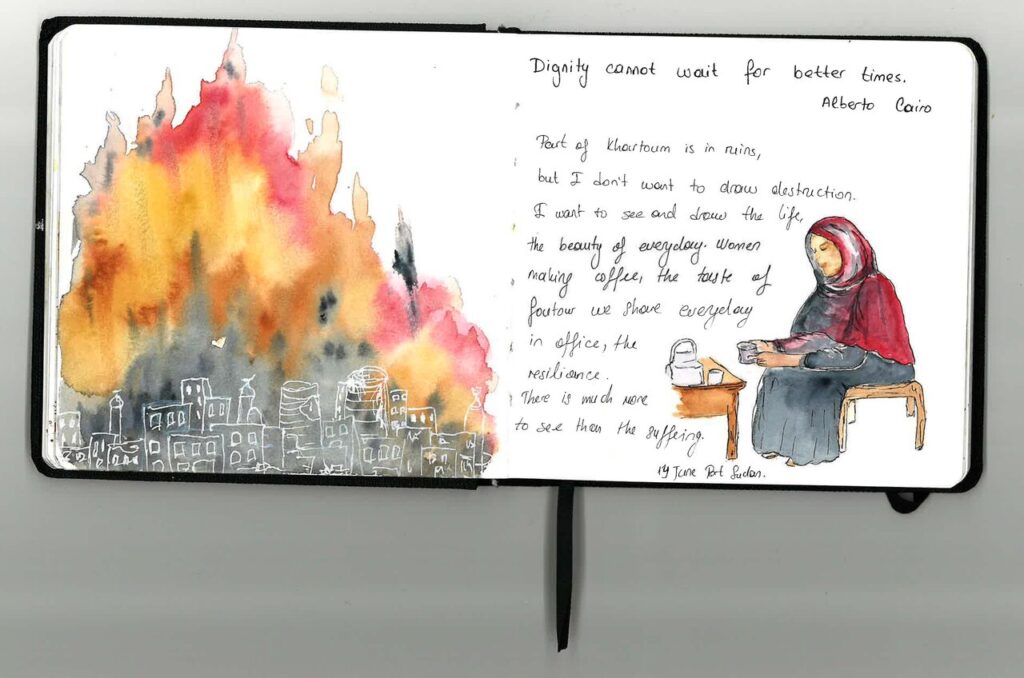 Dignity cannot wait for better times.
Alberto Cairo
Part of Khartoum is in ruins,
but I don't want to draw destruction.
I want to see and draw the life,
the beauty of everyday. Women
making coffee, the taste of
foutour we share everyday
in office, the
resiliance.
There is much more
to see than the suffeing.
19 June Port Sudan.